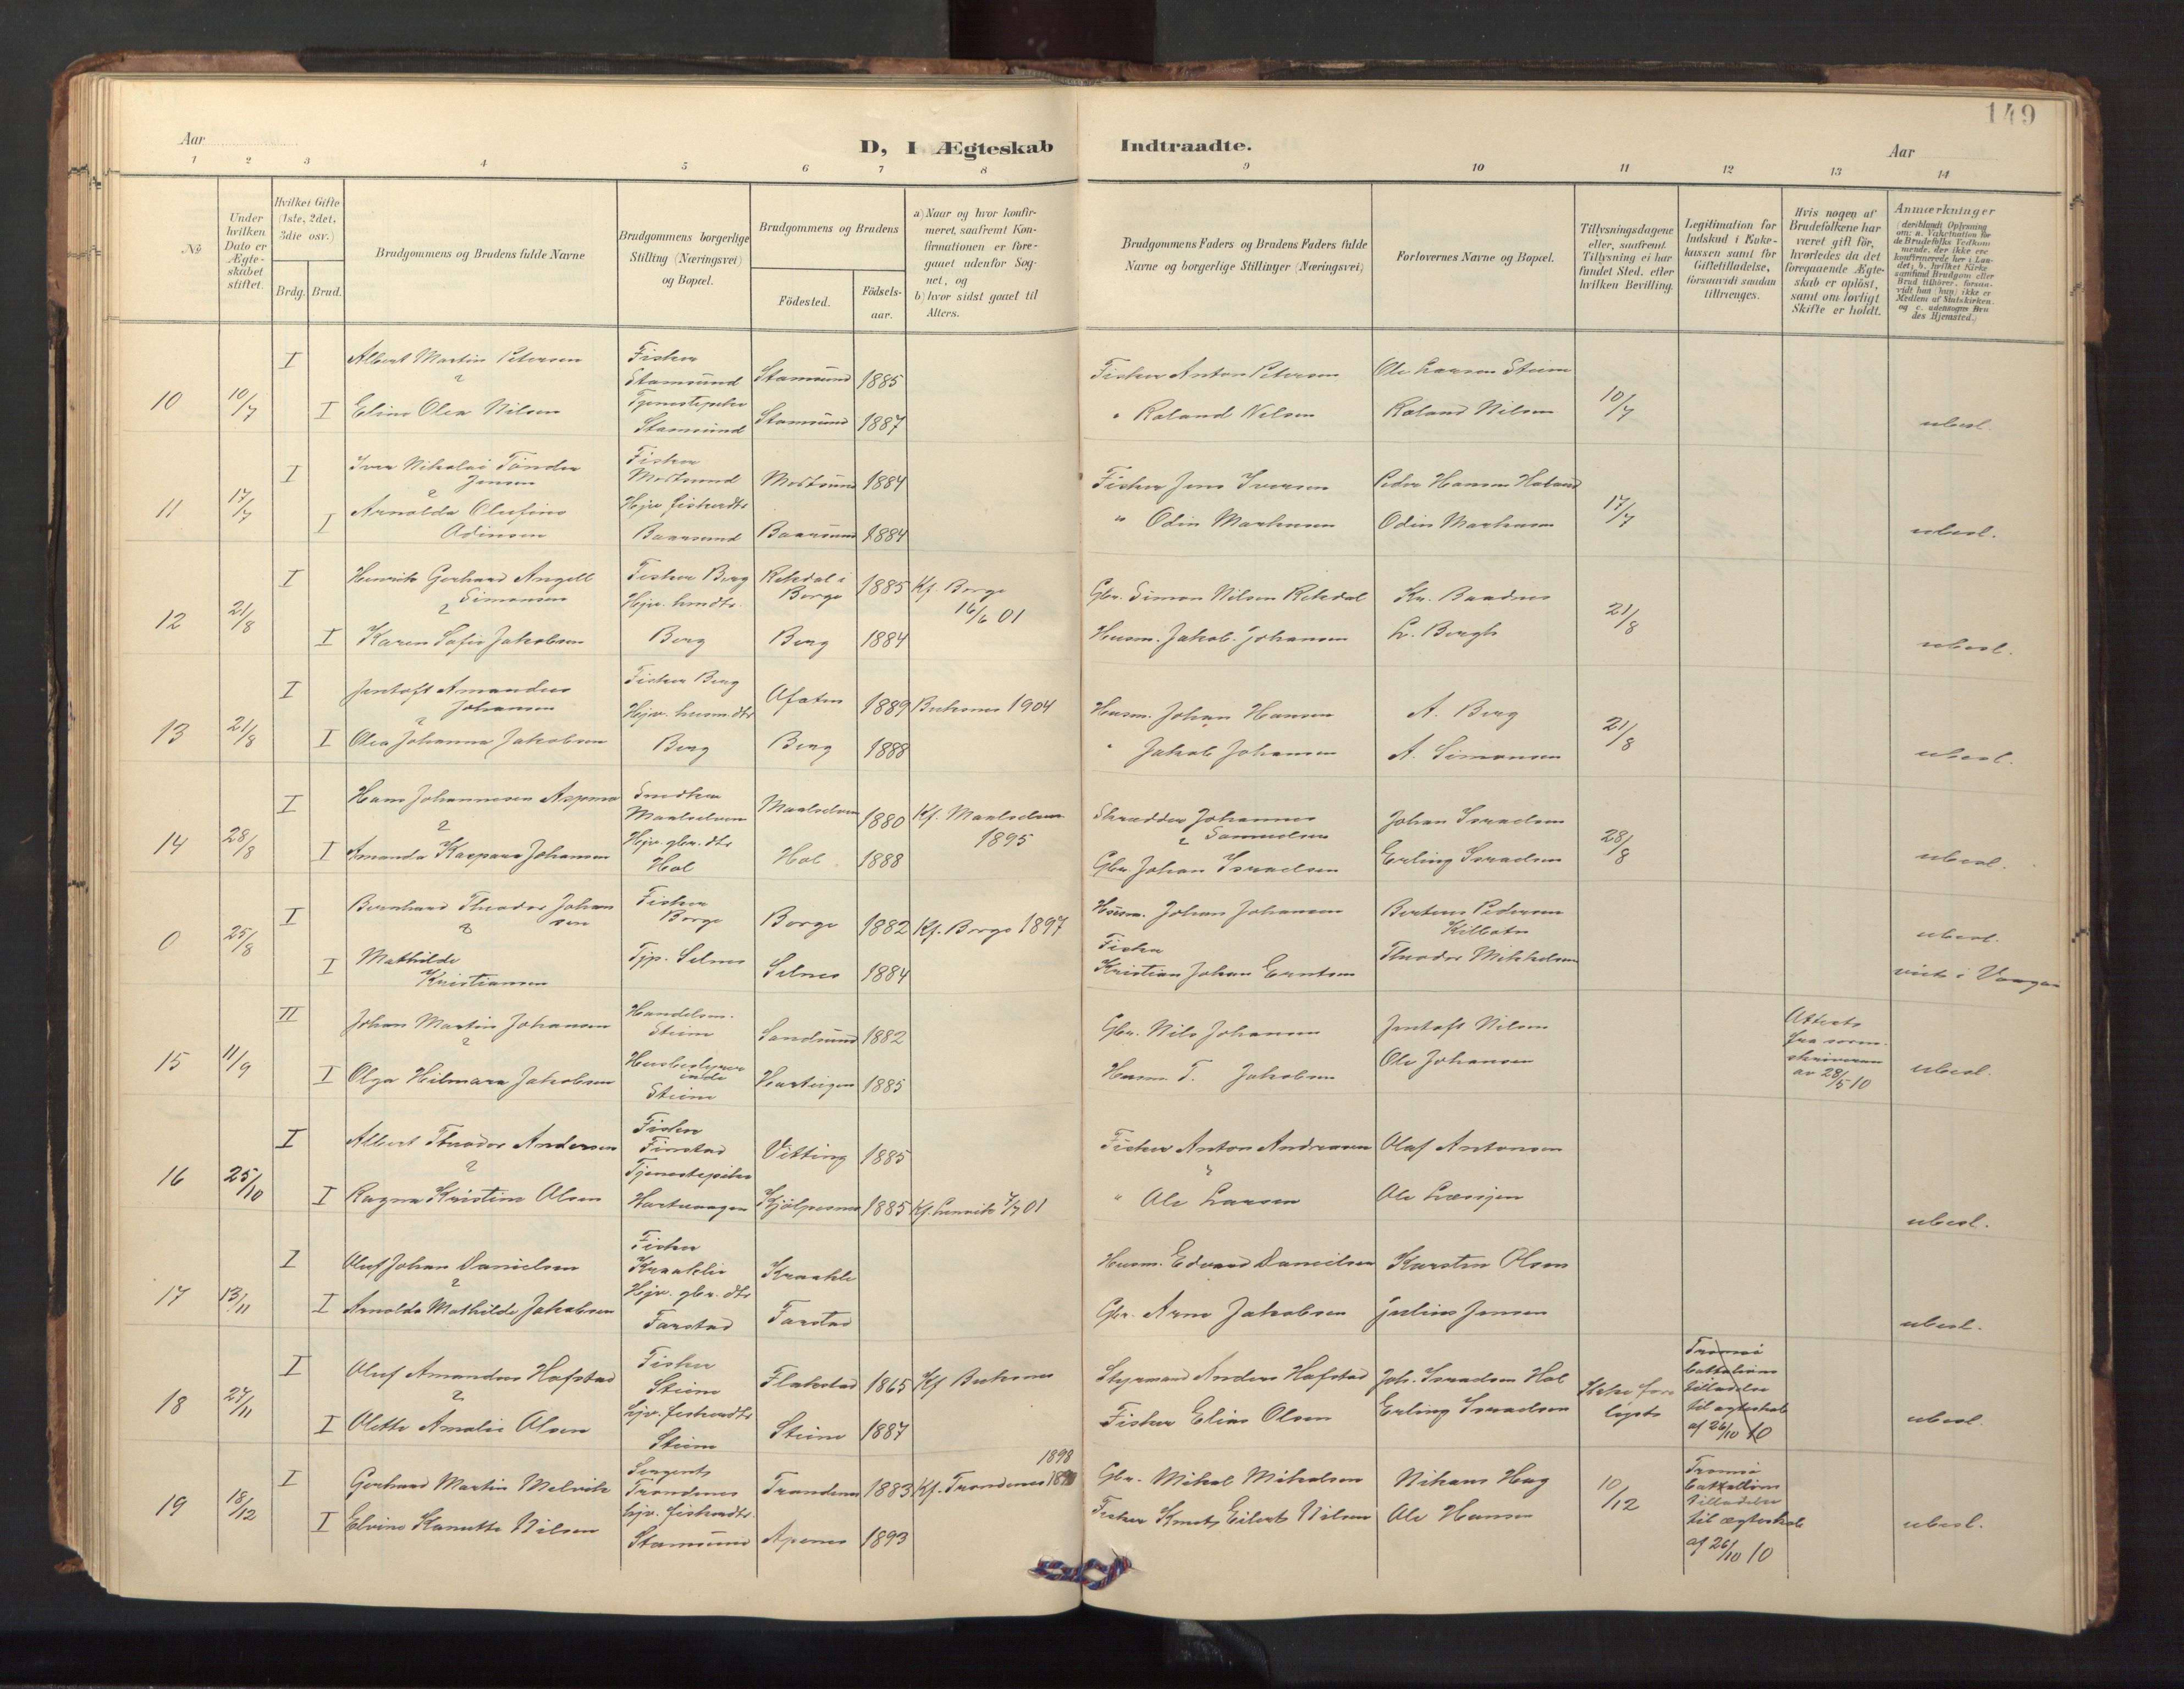 149
Aar
D, I Ægteskab Indtraadte.
Aar
1 2 3 4 5 6 7 8 9 10 11 12 13 14
No.
Under hvilken Dato er Ægteskabet stiftet.
Hvilket Gifte (1ste, 2det, 3die osv.)
Brdg. Brud.
Brudgommens og Brudens fulde Navne
Brudgommens borgerlige Stilling (Næringsvei) og Bopæl.
Brudgommens og Brudens
Födested.
Födselsaar.
a) Naar og hvor konfirmeret, saafremt Konfirmationen er foregaaet udenfor Sognet, og
b) hvor sidst gaaet til Alters.
Brudgommens Faders og Brudens Faders fulde Navne og borgerlige Stillinger (Næringsvei)
Forlovernes Navne og Bopæl.
Tillysningsdagene eller, saafremt Tillysning ei har fundet Sted, efter hvilken Bevilling.
Legitimation for Indskud i Enkekassen samt for Giftetilladelse, forsaavidt saadan tiltrænges.
Hvis nogen af Brudefolkene har været gift för, hvorledes da det foregaaende Ægteskab er oplöst, samt om lovligt Skifte er holdt.
Anmærkninger
(deriblandt Oplysning om: a. Vakcination for de Brudefolks Vedkommende, der ikke ere konfirmerede her i Landet; b. hvilket Kirkesamfund Brudgom eller Brud tilhører, forsaavidt han (hun) ikke er Medlem af Statskirken, og c. udensogns Brudes Hjemsted.)
10 10/7 I Albert Martin Petersen Fisker Stamsund Stamsund 1885 Fisker Anton Petersen Ole Larsen Steine 10/7
& I Eline Olea Nilsen Tjenestepike Stamsund Stamsund 1887 " Roland Nilsen Roland Nilsen ubesl.
11 17/7 I Iver Nikolai Tönder Jensen Fisker Mortsund Mortsund 1884 Fisker Jens Iversen Peder Hansen 17/7
& I Arnolda Olufine Odinsen Hjv. fiskerdtr 1884 " Odin Markusen Odin Markusen ubesl.
12 21/8 I Henrik Gerhard Angell Simonsen Fisker Berg Rekdal i Borge 1885 Kf. Borge 16/6 01 Gbr. Simon Nilsen Rekdal Kr. Baadnes 21/8
& I Karen Sofie Jakobsen Hjv. husmdtr. Berg Berg 1884 Husm. Jakob Johansen L. Bergh ubesl.
13 21/8 I Jentoft Amandus Johansen Fisker Berg 1889 Buksnes 1904 Husm. Johan Hansen A. Berg 21/8
& I Olea Johanna Jakobsen Hjv. husm.dtr Berg Berg 1888 " Jakob Johansen A. Simonsen ubesl.
14 28/8 I Hans Johannesen Snedker Maalselven Maalselven 1880 Kf. Maalselven 1895 Skrædder Johannes Samuelsen Johan Israelsen 28/8
& I Amanda Kaspara Johansen Hjv. gbr. dtr Hol Hol 1888 & Gbr. Johan Israelsen Erling Israelsen ubesl.
0 25/8 I Bernhard Theodor Johansen Fisker Borge Borge 1882 Kf. Borge 1897 Husm. Johan Johansen Pedersen ubesl.
& I Mathilde Kristiansen Tjp. Selnes Selnes 1884 Fisker Kristian Johan Erntsen Theodor Mikkelsen viet i Vaagan
15 11/9 II Johan Martin Johansen Handelsm. Steine Sandsund 1882 Gbr. Nils Johansen Jentoft Nilsen Attest fra sorenskriveren av 28/5 10
& I Olga Hilmara Jakobsen Husbestyrerinde Steine 1885 Husm. T. Jakobsen Ole Johansen ubesl.
16 25/10 I Albert Theodor Andersen Fisker Finstad Vitting 1885 Fisker Anton Andreasen Olaf Antonsen
& I Ragna Kristine Olsen Tjenestepike 1885 Kf. Lenvik 7/7 01 " Ole Larsen Ole ubesl.
17 13/11 I Oluf Johan Danielsen Fisker Husm. Edvard Danielsen Karsten Olsen
& I Arnolda Mathilde Jakobsen Hjv. gbr. dtr Farstad Farstad Gbr. Arne Jakobsen Julius Jensen ubesl.
18 27/11 I Oluf Amandus Hafstad Fisker Steine Flakstad 1865 Kf Buksnes Styrmand Anders Hafstad Joh. Israelsen Hol Tromsö battalions tilladelse til ægteskab af 26/10 10
& I Olette Amalie Olsen hjv. fiskerdtr Steine Steine 1887 Fisker Elias Olsen Erling Israelsen ubesl.
19 18/12 I Gerhard Martin Melvik Sergent Trondenes Trondenes 1883 Kf. Trondenes 1898 Gbr. Mikal Mikalsen Nikans Hag 10/12 Tromsö battallions tilladelse til ægteskab af 26/10 10
I Elvine Kanutte Nilsen hjv. fiskerdtr. Stamsund Apenes 1893 Fisker Knut Eilert Nilsen Ole Hansen ubesl.